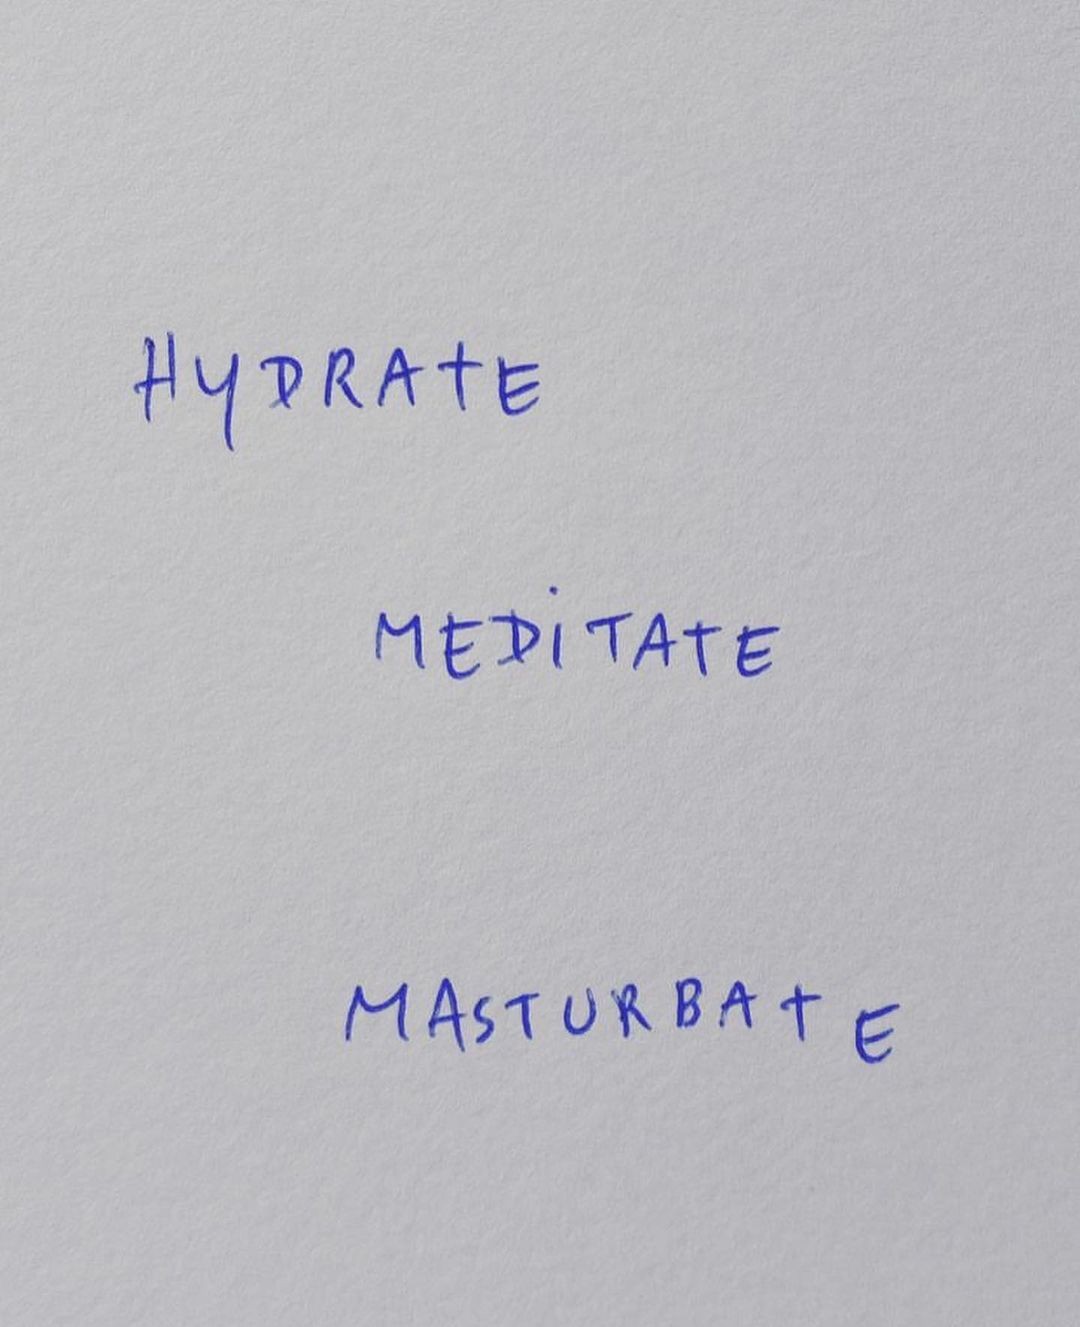 HYDRATE
MEDiTATE
MASTURBATE